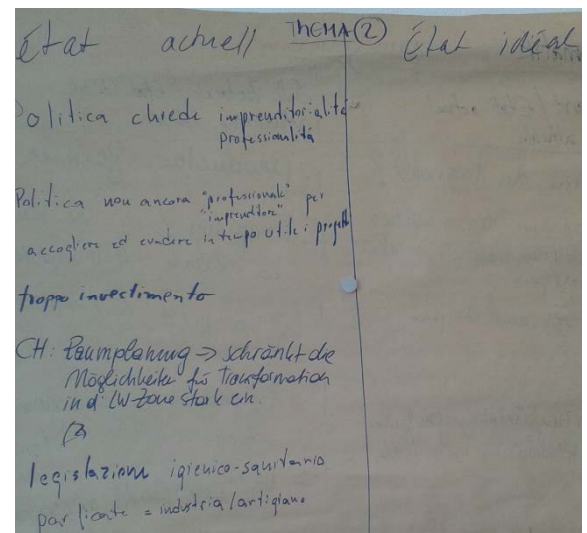 État actuell THEMA 2 État idéal
Politica chiede imprenditorialità
professionalità
Politica non ancora "professionale" per
"imprenditore"
accogliere ed evadere in tempo utile i progetti
troppo investimento
CH: Raumplanung → schränkt die
Möglichkeiten für Transformation
in d. LW-Zone stark ein.
legislazione igienico-sanitario
par l'ente = industria/artigiano